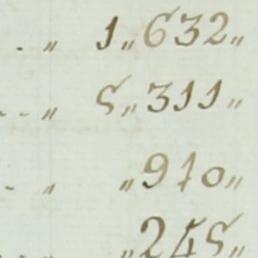 . „ 1„632„
. . „ 5„311„
. „ „910„
„245„